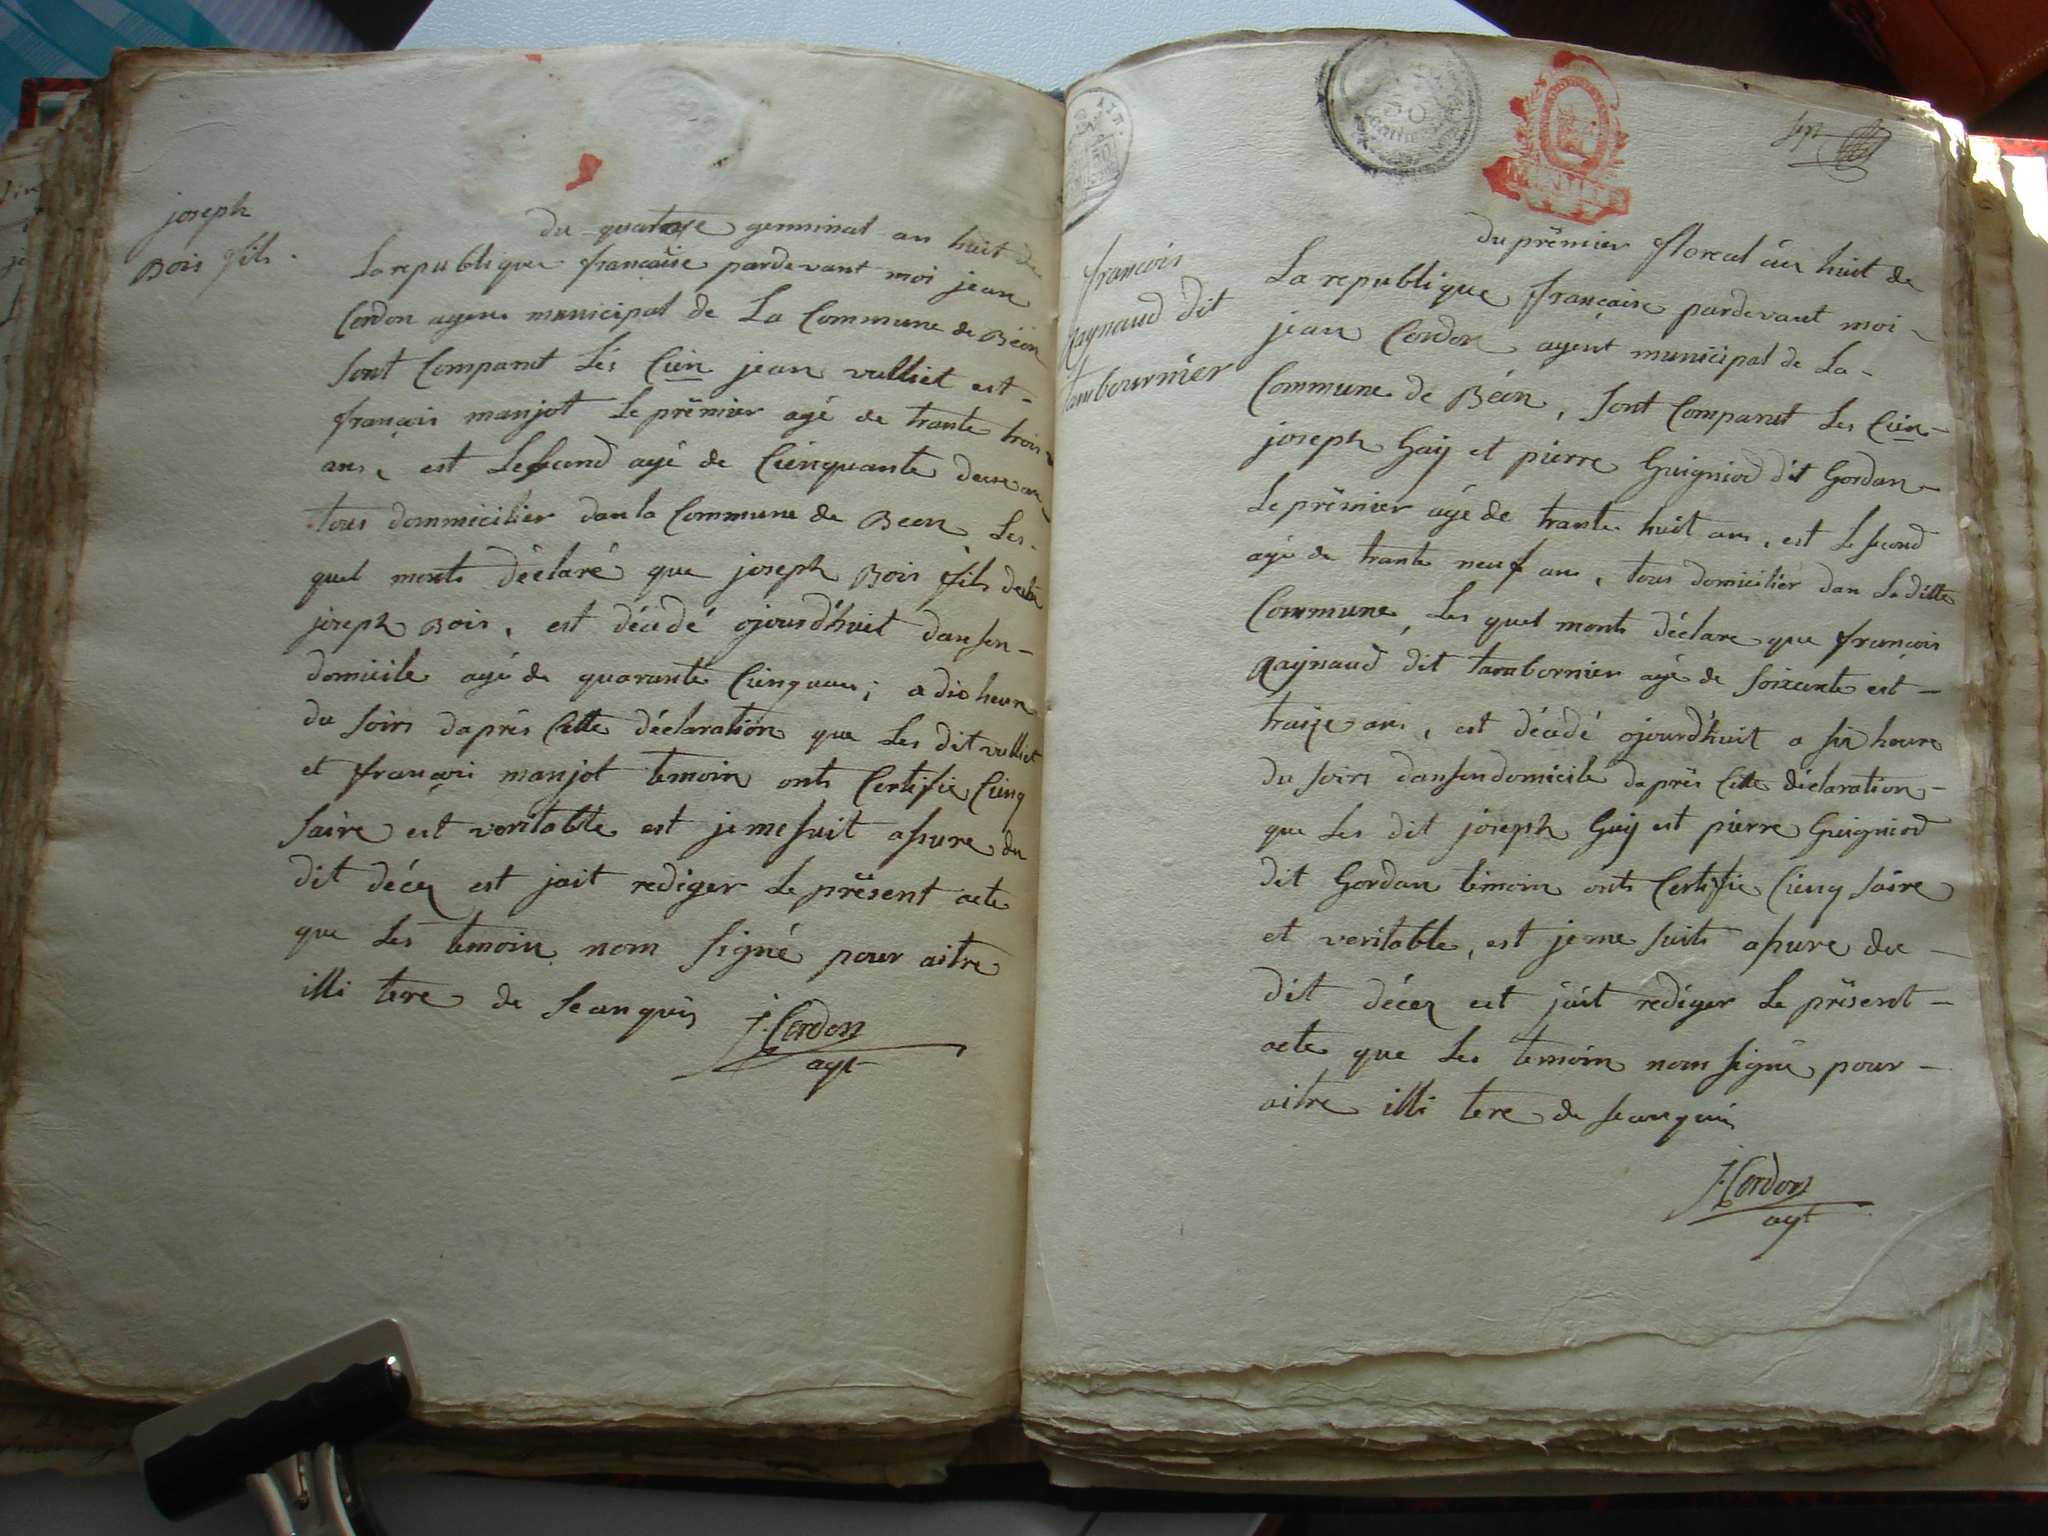 joseph
Bois fils.
du quatorze germinal an huit de
La republique francaise pardevant moi jean
Cordon agent municipal de La Commune de Béon
Sont Comparut Lés Cien jean vulliet est
françois manjot Le prëmier agé de trante trois
ans, est Lesecond agé de Cienquante deuse an
tous dommicilier dan la Commune de Beon Les-
quel monts déclaré que joseph Bois fils de
joseph Bois, est décédé ojourd'huit dansson-
domicile agé de quarante Cienq ans; a dix heure
du soirs daprés Cette déclaration que Les dit vulliet
et françois manjot temoin onts Certifie Cienq
saire est veritable est jemesuit assure du
dit décez est jait rediger Le prësent acte
que Les temoin nom signé pour aitre
illi tere de seanquis
j. Cordon
agt
francois
Raynaud dit
tambournier
du prëmier floreal an huit de
La republique française pardevant moi
jean Cordon agent municipal de La-
Commune de Béon, Sont Comparut Les Cien-
joseph Gaij et pierre Guigniod dit Gordan-
Le prëmier agé de trante huit ans, est Le second
agé de trante neuf ans, tous domicilier dan La ditte
Commune, Les quel monts déclare que françois
Raijnaud dit tambornier agé de soixante est-
traize ans, est décédé ojourd'huit a six heure
du soirs dansson domicile daprés Cette déclaration-
que Les dit joseph Gaij est pierre Guigniod
dit Gordan temoin onts Certifie Cienq saire
et veritable, est jeme suits assure du-
dit décez est jait rediger Le prësent-
acte que Les temoin nom signé pour-
aitre illi tere de seanquis
j. Cordon
agt